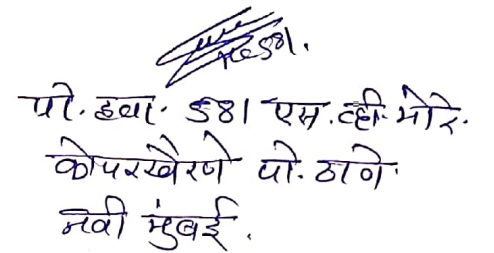 पो. हवा. 581 एस. व्ही. मोरे.
कोपरखैरणे पो. ठाणे.
नवी मुंबई.